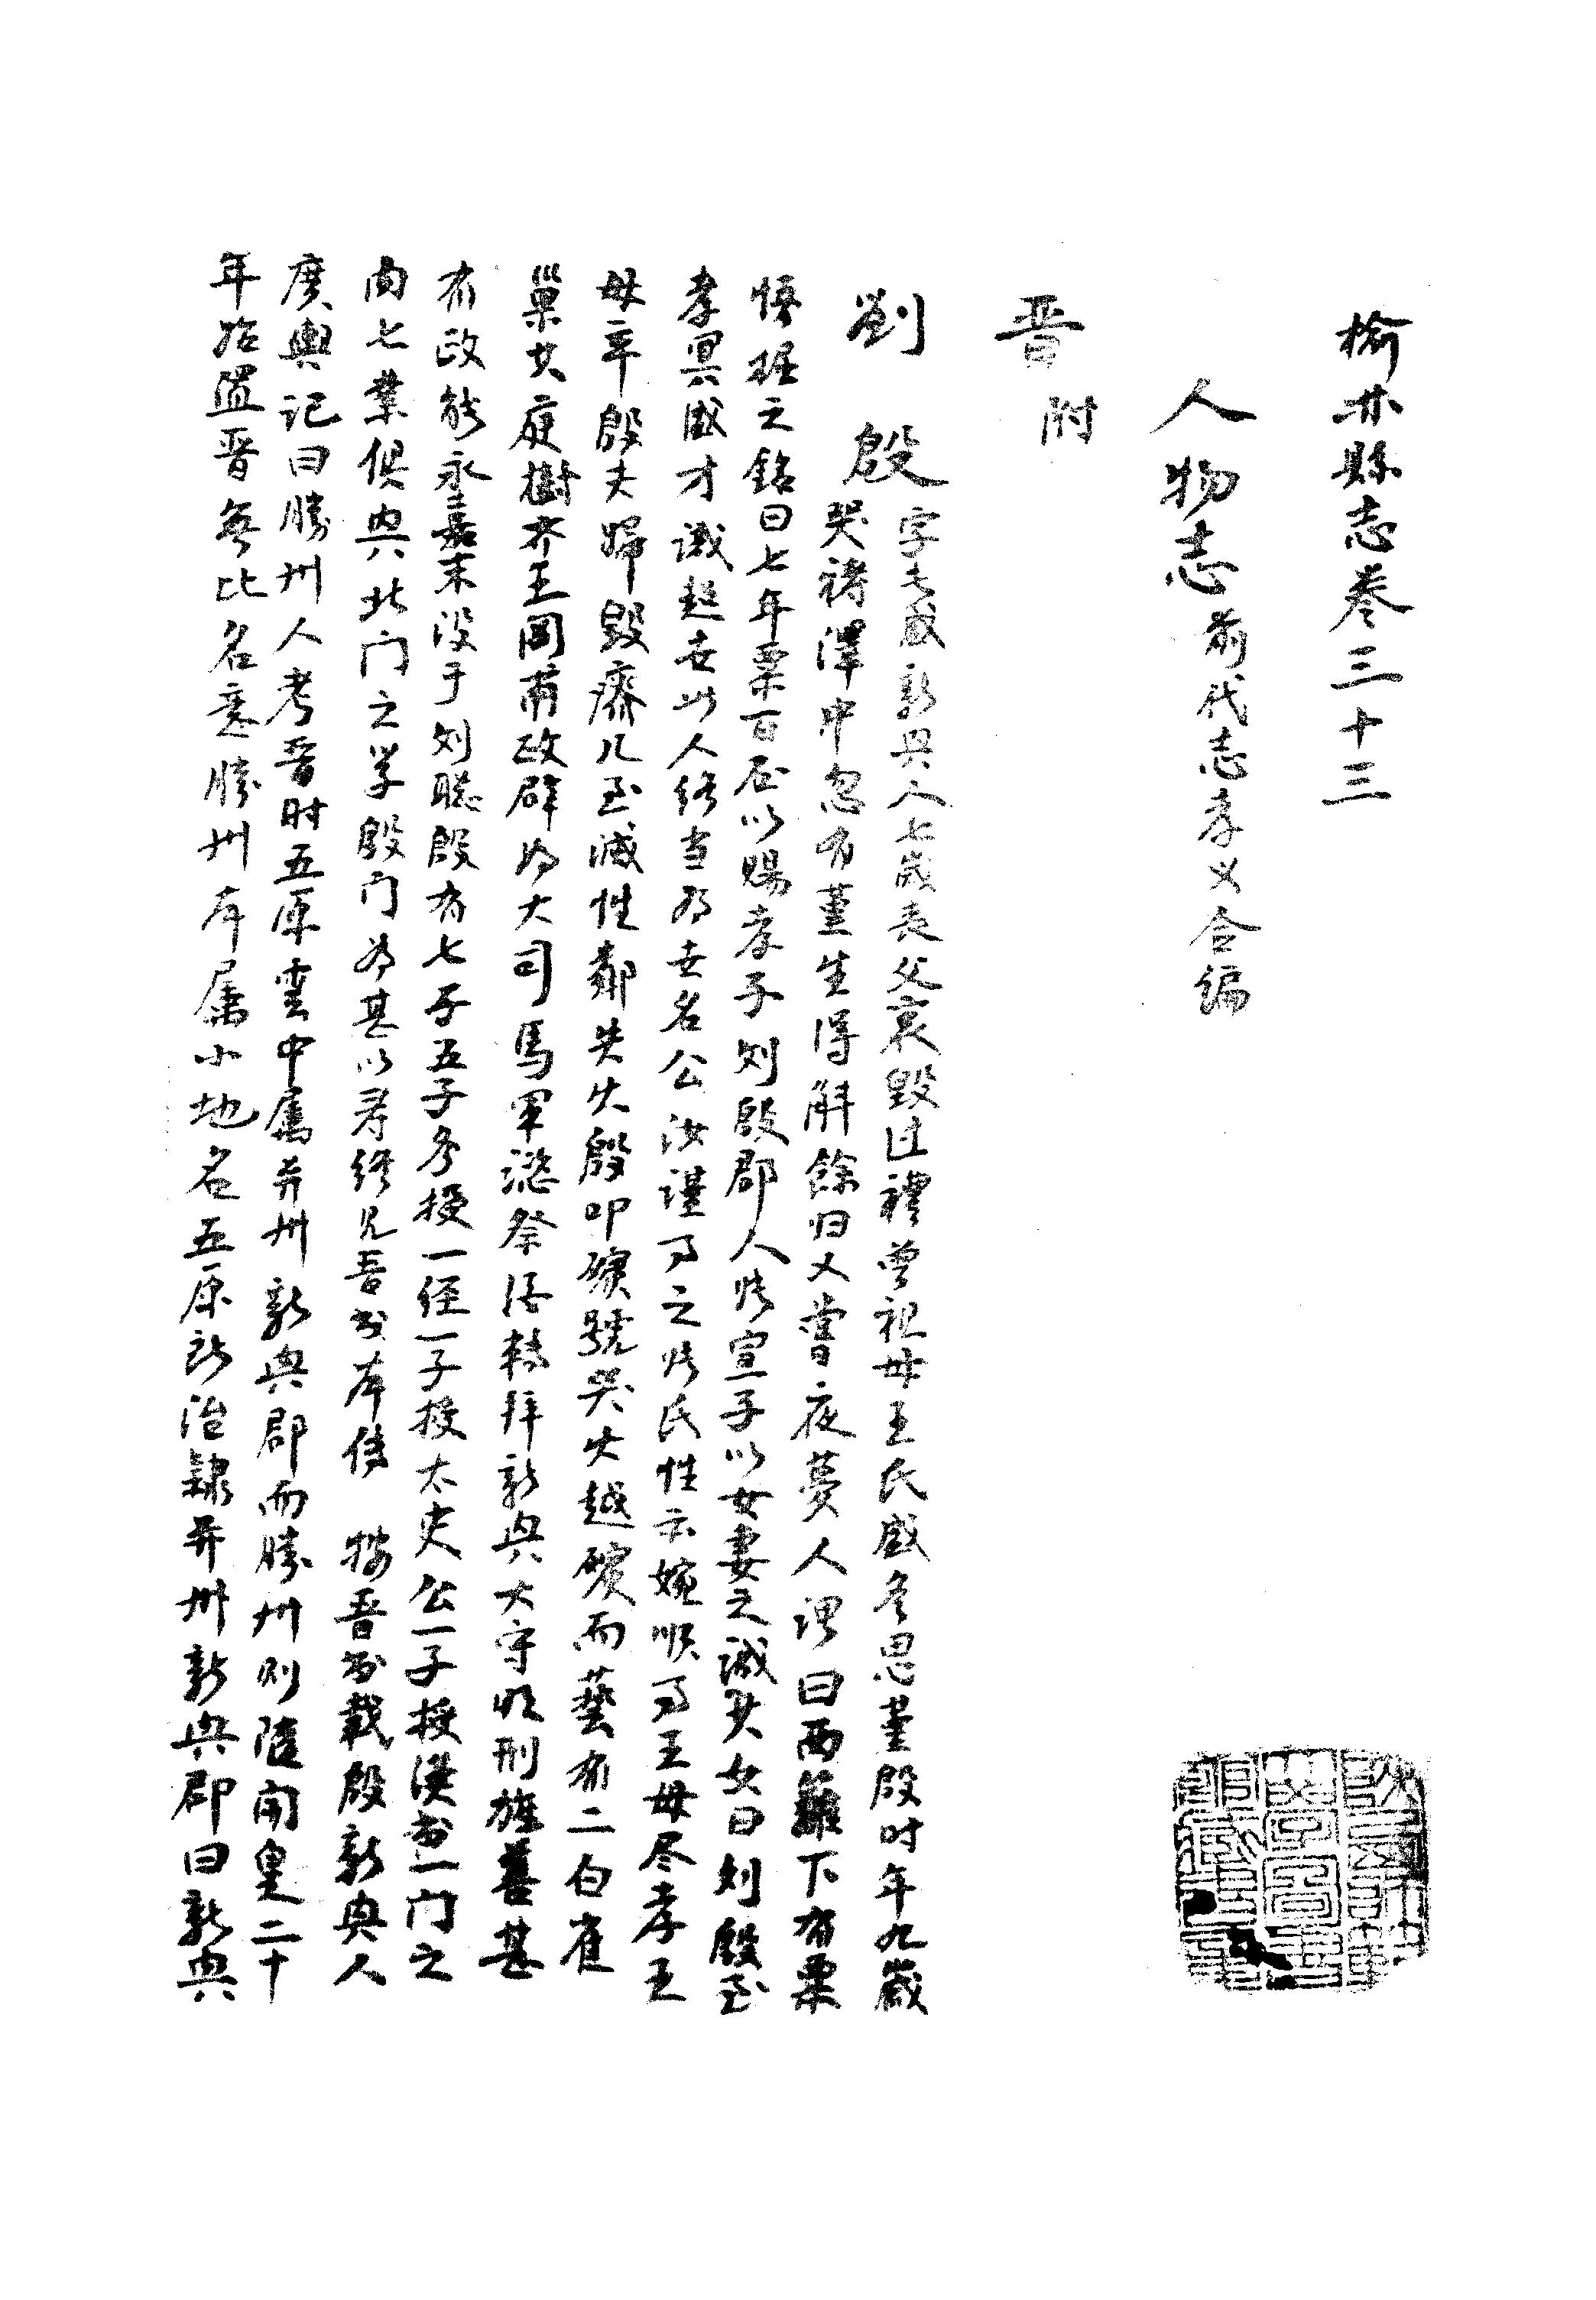 榆林縣志卷三十三
人物志 前代志孝义合編
晋附
劉殷 字長盛新興人七歲丧父哀毁过禮曾祖母王氏盛冬思堇殷时年九歲
哭禱澤中忽有堇生得斛餘归又嘗夜夢人谓曰西籬下有粟
悟掘之銘曰七年粟百石以賜孝子刘殷郡人张宣子以女妻之誡其女曰刘殷至
孝冥感才識超世此人终当为世名公汝谨事之张氏性亦婉顺事王母尽孝王
母卒殷夫婦毀瘠几至滅性鄰失火殷叩殯號哭火越殯而藝有二白雀
巢其庭樹齐王冏輔政辟为大司馬軍諮祭酒轉拜新興太守明刑旌善甚
有政能永嘉末没于刘聪殷有七子五子各授一经一子授太史公一子授漢書一门之
内七業俱興北门之学殷门为甚以寿终見晋书本传 按晋书载殷新興人
廣輿記曰勝州人考晋时五原雲中属并州新興郡而勝州则隋開皇二十
年始置晋無此名意勝州本属小地名五原所治隸并州新興郡曰新興